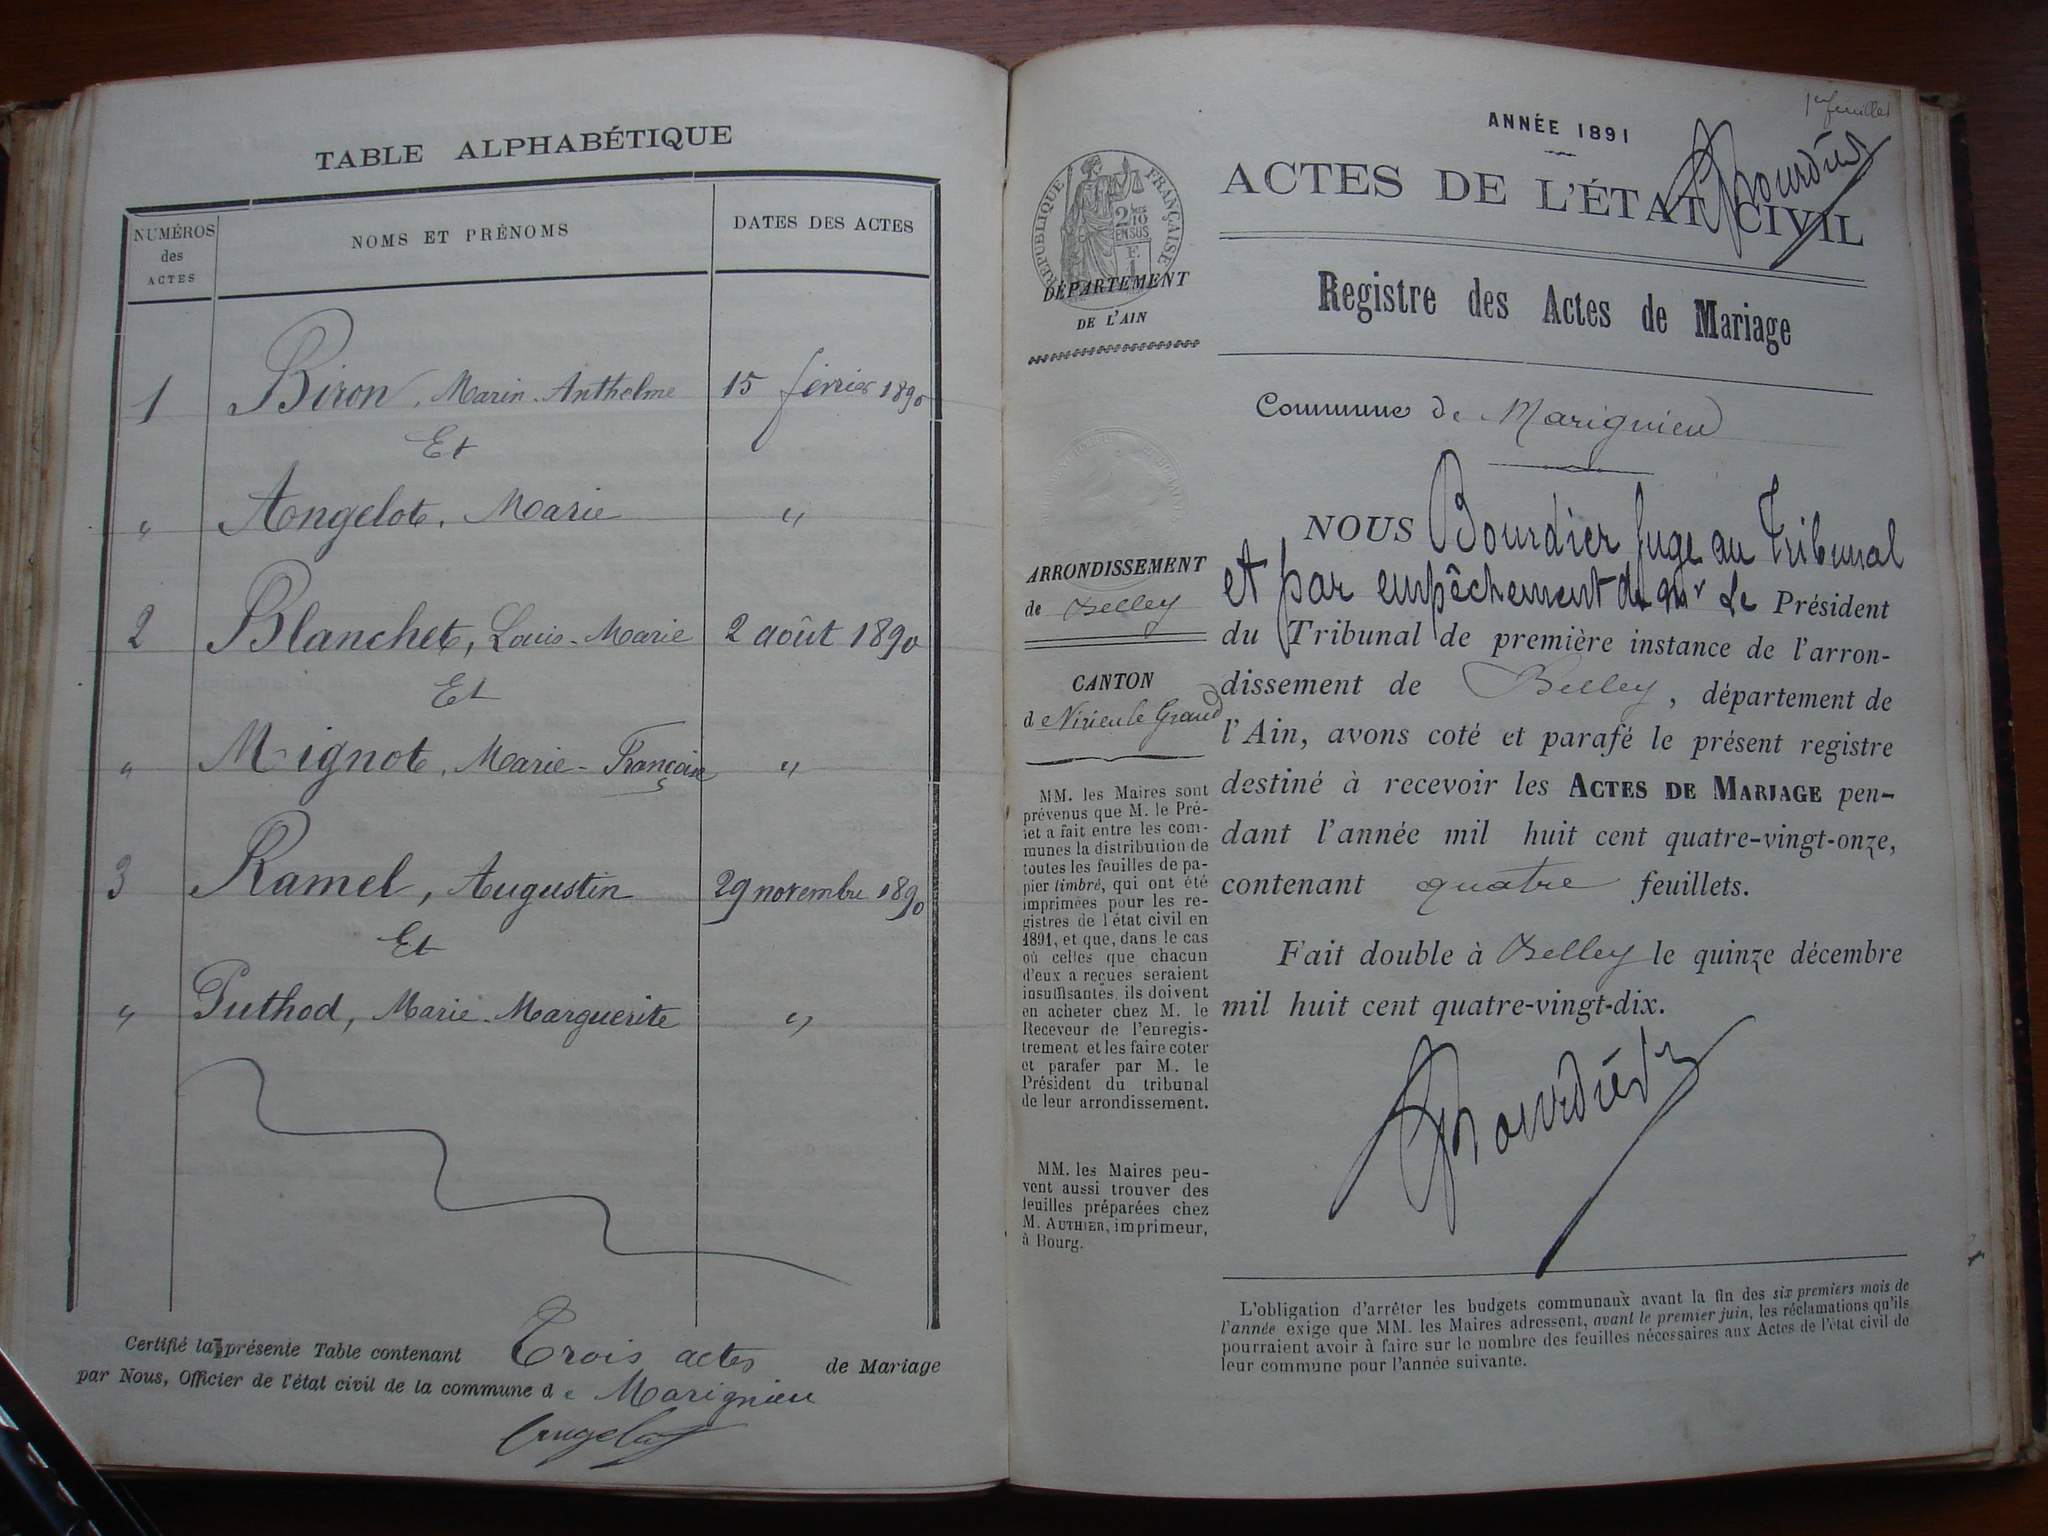 TABLE ALPHABÉTIQUE
NUMÉROS des ACTES
NOMS ET PRÉNOMS
DATES DES ACTES
1 Biron, Marin-Anthelme 15 février 1890
Et
" Angelot, Marie "
2 Blanchet, Louis-Marie 2 août 1890
Et
" Mignot, Marie-Françoise "
3 Ramel, Augustin 29 novembre 1890
Et
" Puthod, Marie-Marguerite "
Certifié la présente Table contenant Trois actes de Mariage
par Nous, Officier de l'état civil de la commune de Marignieu
Angelot
1er feuillet
ANNÉE 1891
Bourdier
ACTES DE L'ÉTAT CIVIL
RÉPUBLIQUE FRANÇAISE
2/10 EN SUS
E
1
DÉPARTEMENT
DE L'AIN
Registre des Actes de Mariage
Commune de Marignieu
ARRONDISSEMENT
de Belley
CANTON
de Virieu le Grand
MM. les Maires sont
prévenus que M. le Pré-
fet a fait entre les com-
munes la distribution de
toutes les feuilles de pa-
pier timbré, qui ont été
imprimées pour les re-
gistres de l'état civil en
1891, et que, dans le cas
où celles que chacun
d'eux a reçues seraient
insuffisantes, ils doivent
en acheter chez M. le
Receveur de l'enregis-
trement et les faire coter
et parafer par M. le
Président du tribunal
de leur arrondissement.
MM. les Maires peu-
vent aussi trouver des
feuilles préparées chez
M. AUTHIER, imprimeur,
à Bourg.
NOUS Bourdier Juge au Tribunal
et par empêchement de Mr Le Président
du Tribunal de première instance de l'arron-
dissement de Belley, département de
l'Ain, avons coté et parafé le présent registre
destiné à recevoir les ACTES DE MARIAGE pen-
dant l'année mil huit cent quatre-vingt-onze,
contenant quatre feuillets.
Fait double à Belley le quinze décembre
mil huit cent quatre-vingt-dix.
Bourdier
L'obligation d'arrêter les budgets communaux avant la fin des six premiers mois de
l'année exige que MM. les Maires adressent, avant le premier juin, les réclamations qu'ils
pourraient avoir à faire sur le nombre des feuilles nécessaires aux Actes de l'état civil de
leur commune pour l'année suivante.